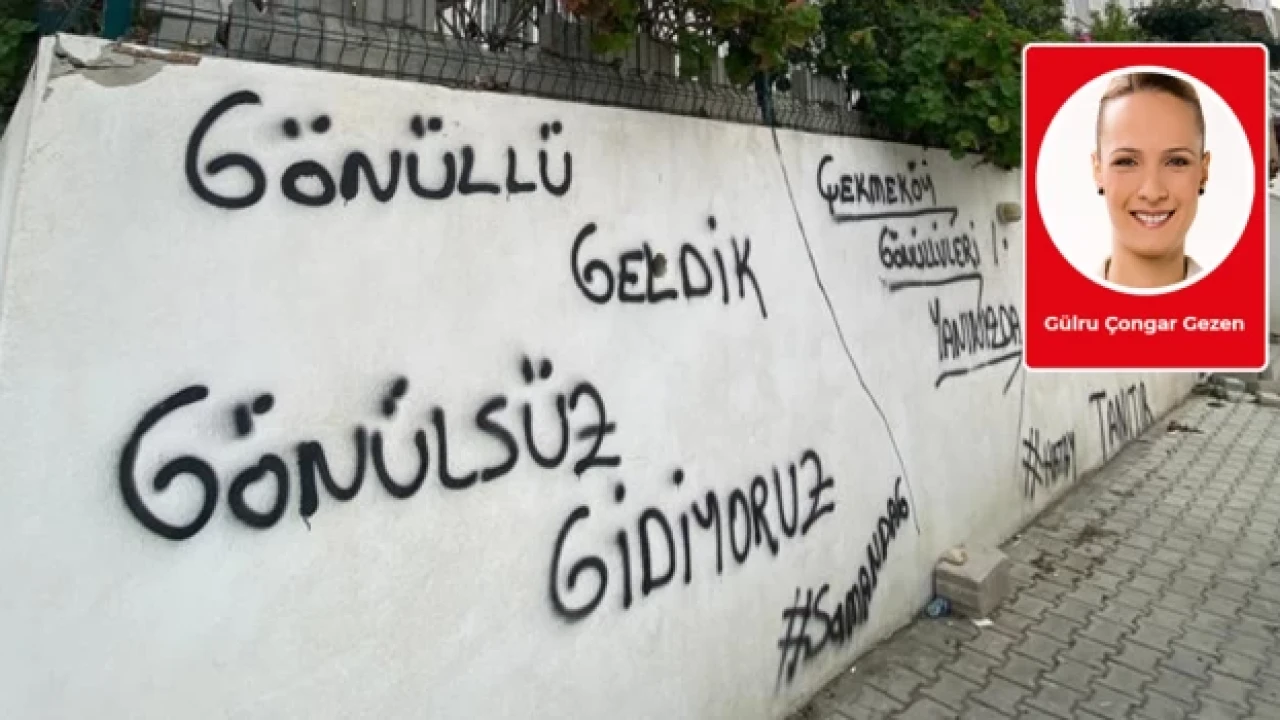 GÖNÜLLÜ
GELDİK
GÖNÜLSÜZ
GİDİYORUZ
#SAMANDAĞ
ÇEKMEKÖY
GÖNÜLLÜLERİ !
YANINIZDA
#HATAY
Gülru Çongar Gezen